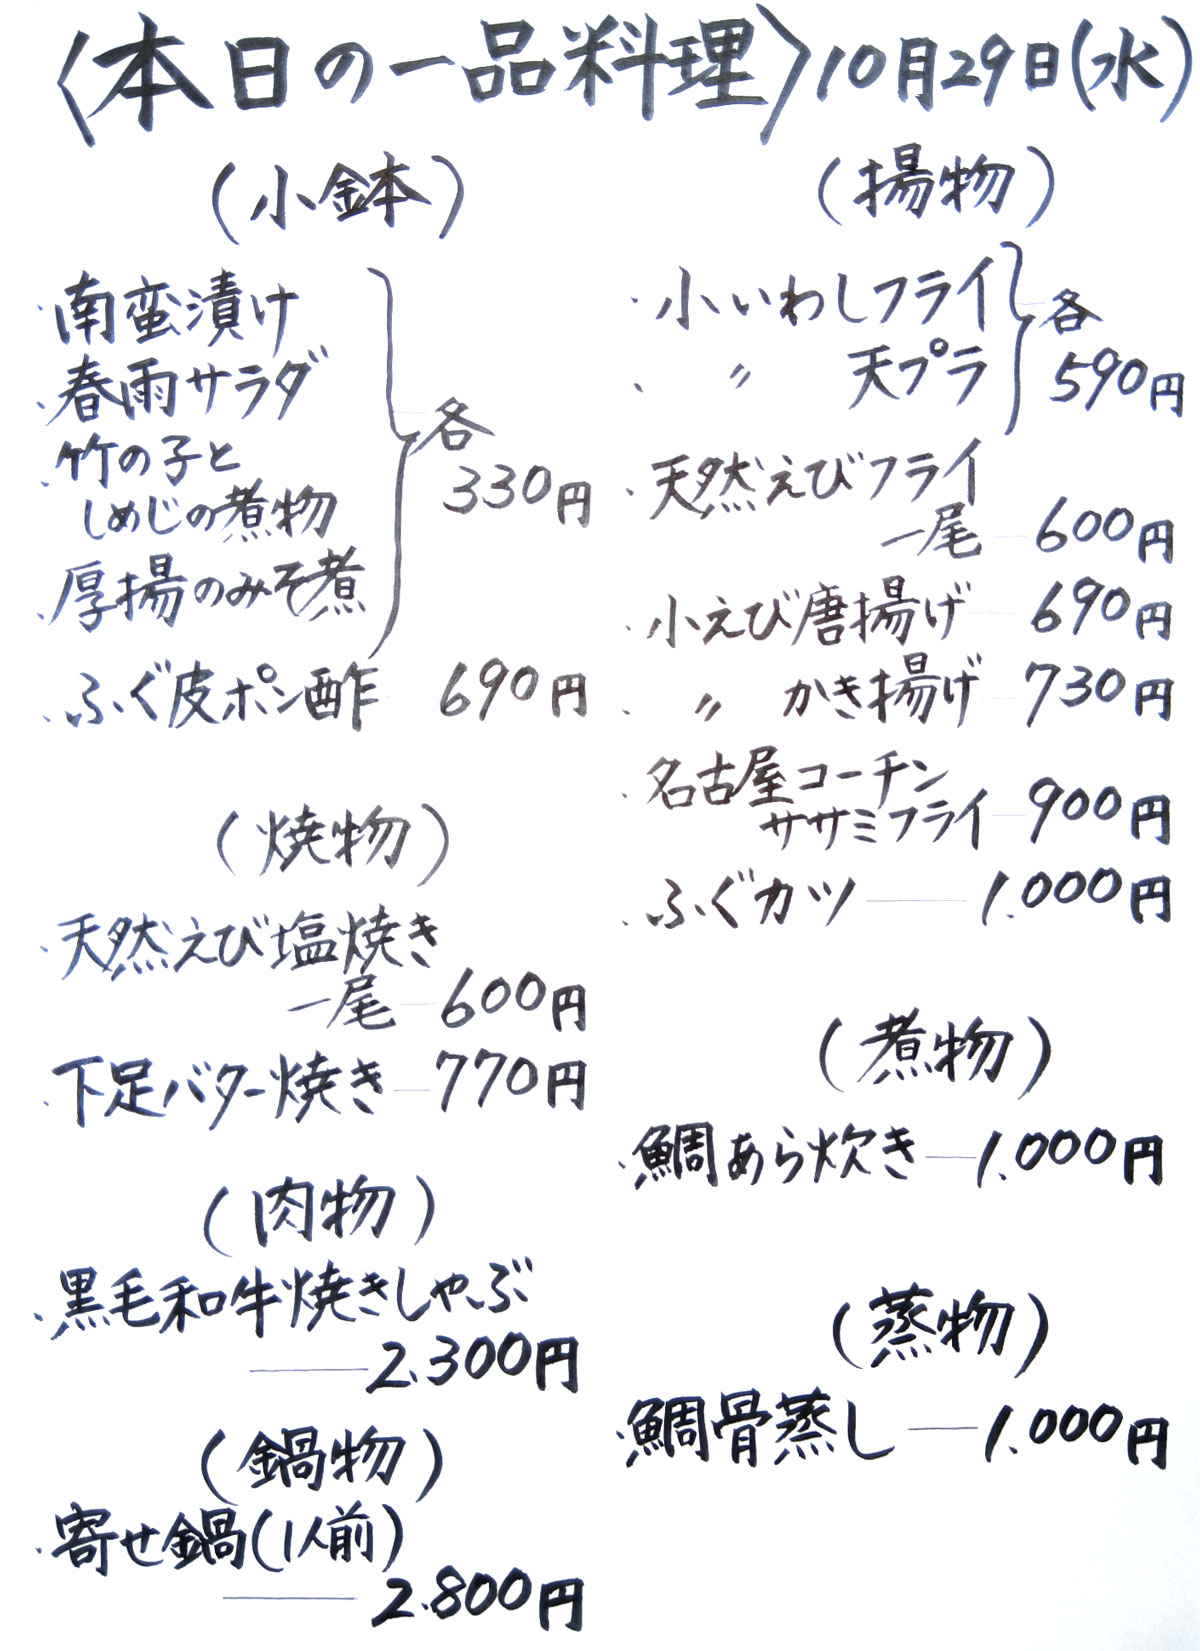 〈本日の一品料理〉10月29日(水)
(小鉢)
・南蛮漬け
・春雨サラダ
・竹の子と
しめじの煮物
・厚揚のみそ煮
各
330円
・ふぐ皮ポン酢 690円
(焼物)
・天然えび塩焼き
一尾 — 600円
・下足バター焼き — 770円
(肉物)
・黒毛和牛焼きしゃぶ
— 2.300円
(鍋物)
・寄せ鍋(1人前)
— 2.800円
(揚物)
・小いわしフライ
・〃 天プラ
各
590円
・天然えびフライ
一尾 — 600円
・小えび唐揚げ — 690円
・〃 かき揚げ — 730円
・名古屋コーチン
ササミフライ — 900円
・ふぐカツ — 1.000円
(煮物)
・鯛あら炊き — 1.000円
(蒸物)
・鯛骨蒸し — 1.000円